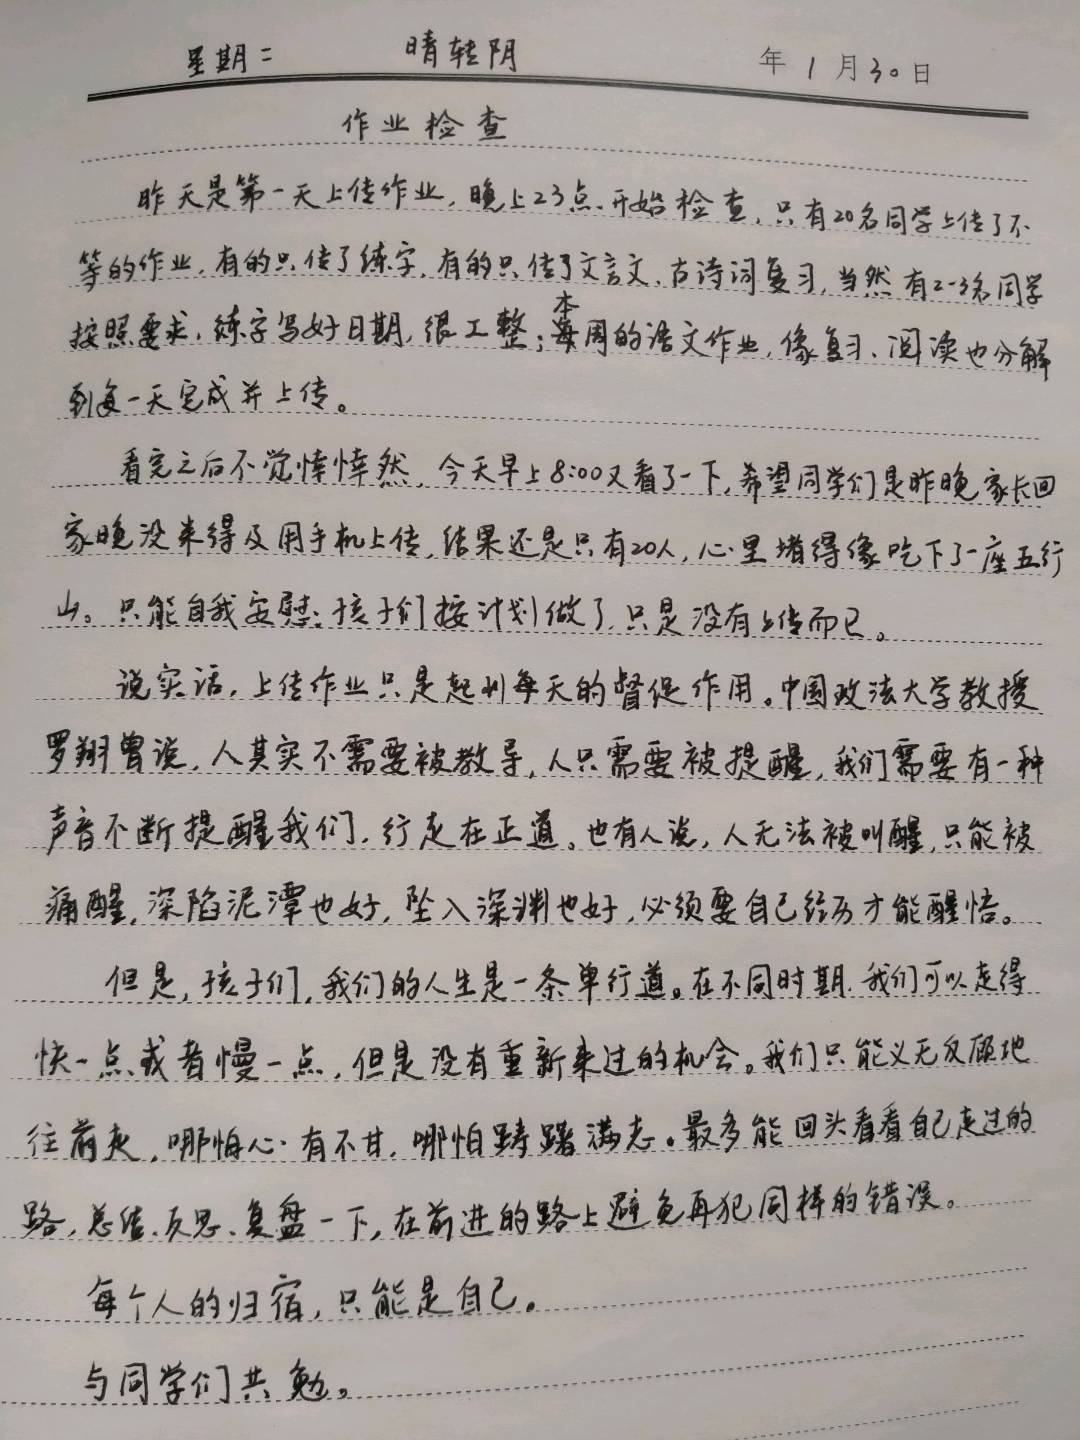 星期二 晴转阴 年1月30日
作业检查
昨天是第一天上传作业,晚上23点、开始检查,只有20名同学上传了不
等的作业,有的只传了练字,有的只传了文言文、古诗词复习,当然有2-3名同学
按照要求,练字写好日期,很工整;本周的语文作业,像复习、阅读也分解
到每一天完成并上传。
看完之后不觉悻悻然,今天早上8:00又看了一下,希望同学们是昨晚家长回
家晚没来得及用手机上传,结果还是只有20人,心里堵得像吃下了一座五行
山。只能自我安慰:孩子们按计划做了,只是没有上传而已。
说实话,上传作业只是起到每天的督促作用。中国政法大学教授
罗翔曾说,人其实不需要被教导,人只需要被提醒,我们需要有一种
声音不断提醒我们,行走在正道。也有人说,人无法被叫醒,只能被
痛醒,深陷泥潭也好,坠入深渊也好,必须要自己经历才能醒悟。
但是,孩子们,我们的人生是一条单行道。在不同时期,我们可以走得
快一点或者慢一点,但是没有重新来过的机会。我们只能义无反顾地
往前走,哪怕心有不甘,哪怕踌躇满志。最多能回头看看自己走过的
路,总结、反思、复盘一下,在前进的路上避免再犯同样的错误。
每个人的归宿,只能是自己。
与同学们共勉。